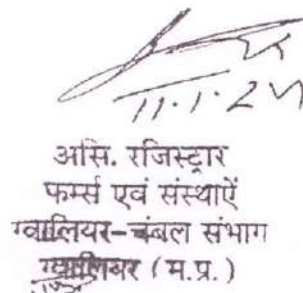 11.1.24
असि. रजिस्ट्रार
फर्म्स एवं संस्थाऐं
ग्वालियर-चंबल संभाग
ग्वालियर (म.प्र.)